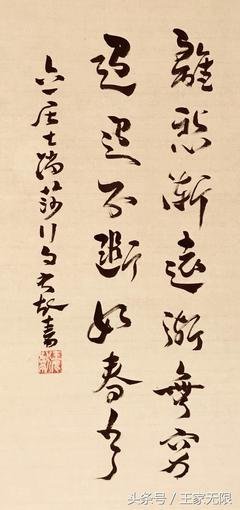 離愁漸遠漸無窮
迢迢不斷如春水
六一居士踏莎行句書
头条号 / 王家无限